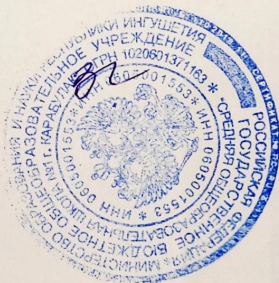 РОССИЙСКАЯ ФЕДЕРАЦИЯ * МИНИСТЕРСТВО ОБРАЗОВАНИЯ И НАУКИ РЕСПУБЛИКИ ИНГУШЕТИЯ
ГОСУДАРСТВЕННОЕ БЮДЖЕТНОЕ ОБЩЕОБРАЗОВАТЕЛЬНОЕ УЧРЕЖДЕНИЕ
* "СРЕДНЯЯ ОБЩЕОБРАЗОВАТЕЛЬНАЯ ШКОЛА №1 г. КАРАБУЛАК" ОГРН 1020601371163
* ИНН 0605001553 * ИНН 0605001553 * ИНН 0605001553